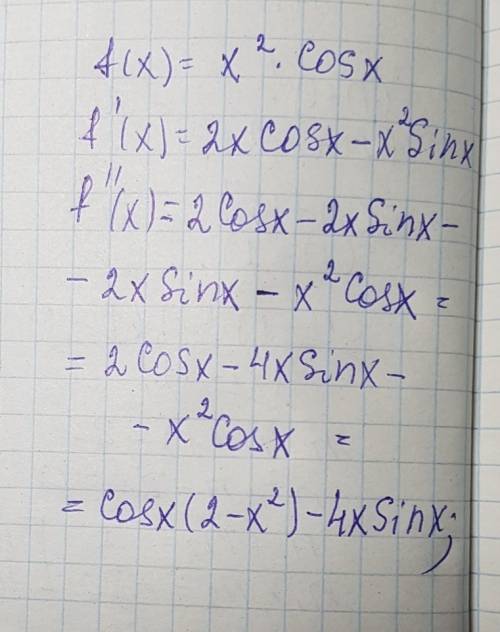 f(x) = x² · cosx
f'(x) = 2x cosx − x² Sinx
f''(x) = 2 Cosx − 2x Sinx −
− 2x Sinx − x² Cosx =
= 2 Cosx − 4x Sinx −
− x² Cosx =
= Cosx (2 − x²) − 4x Sinx;